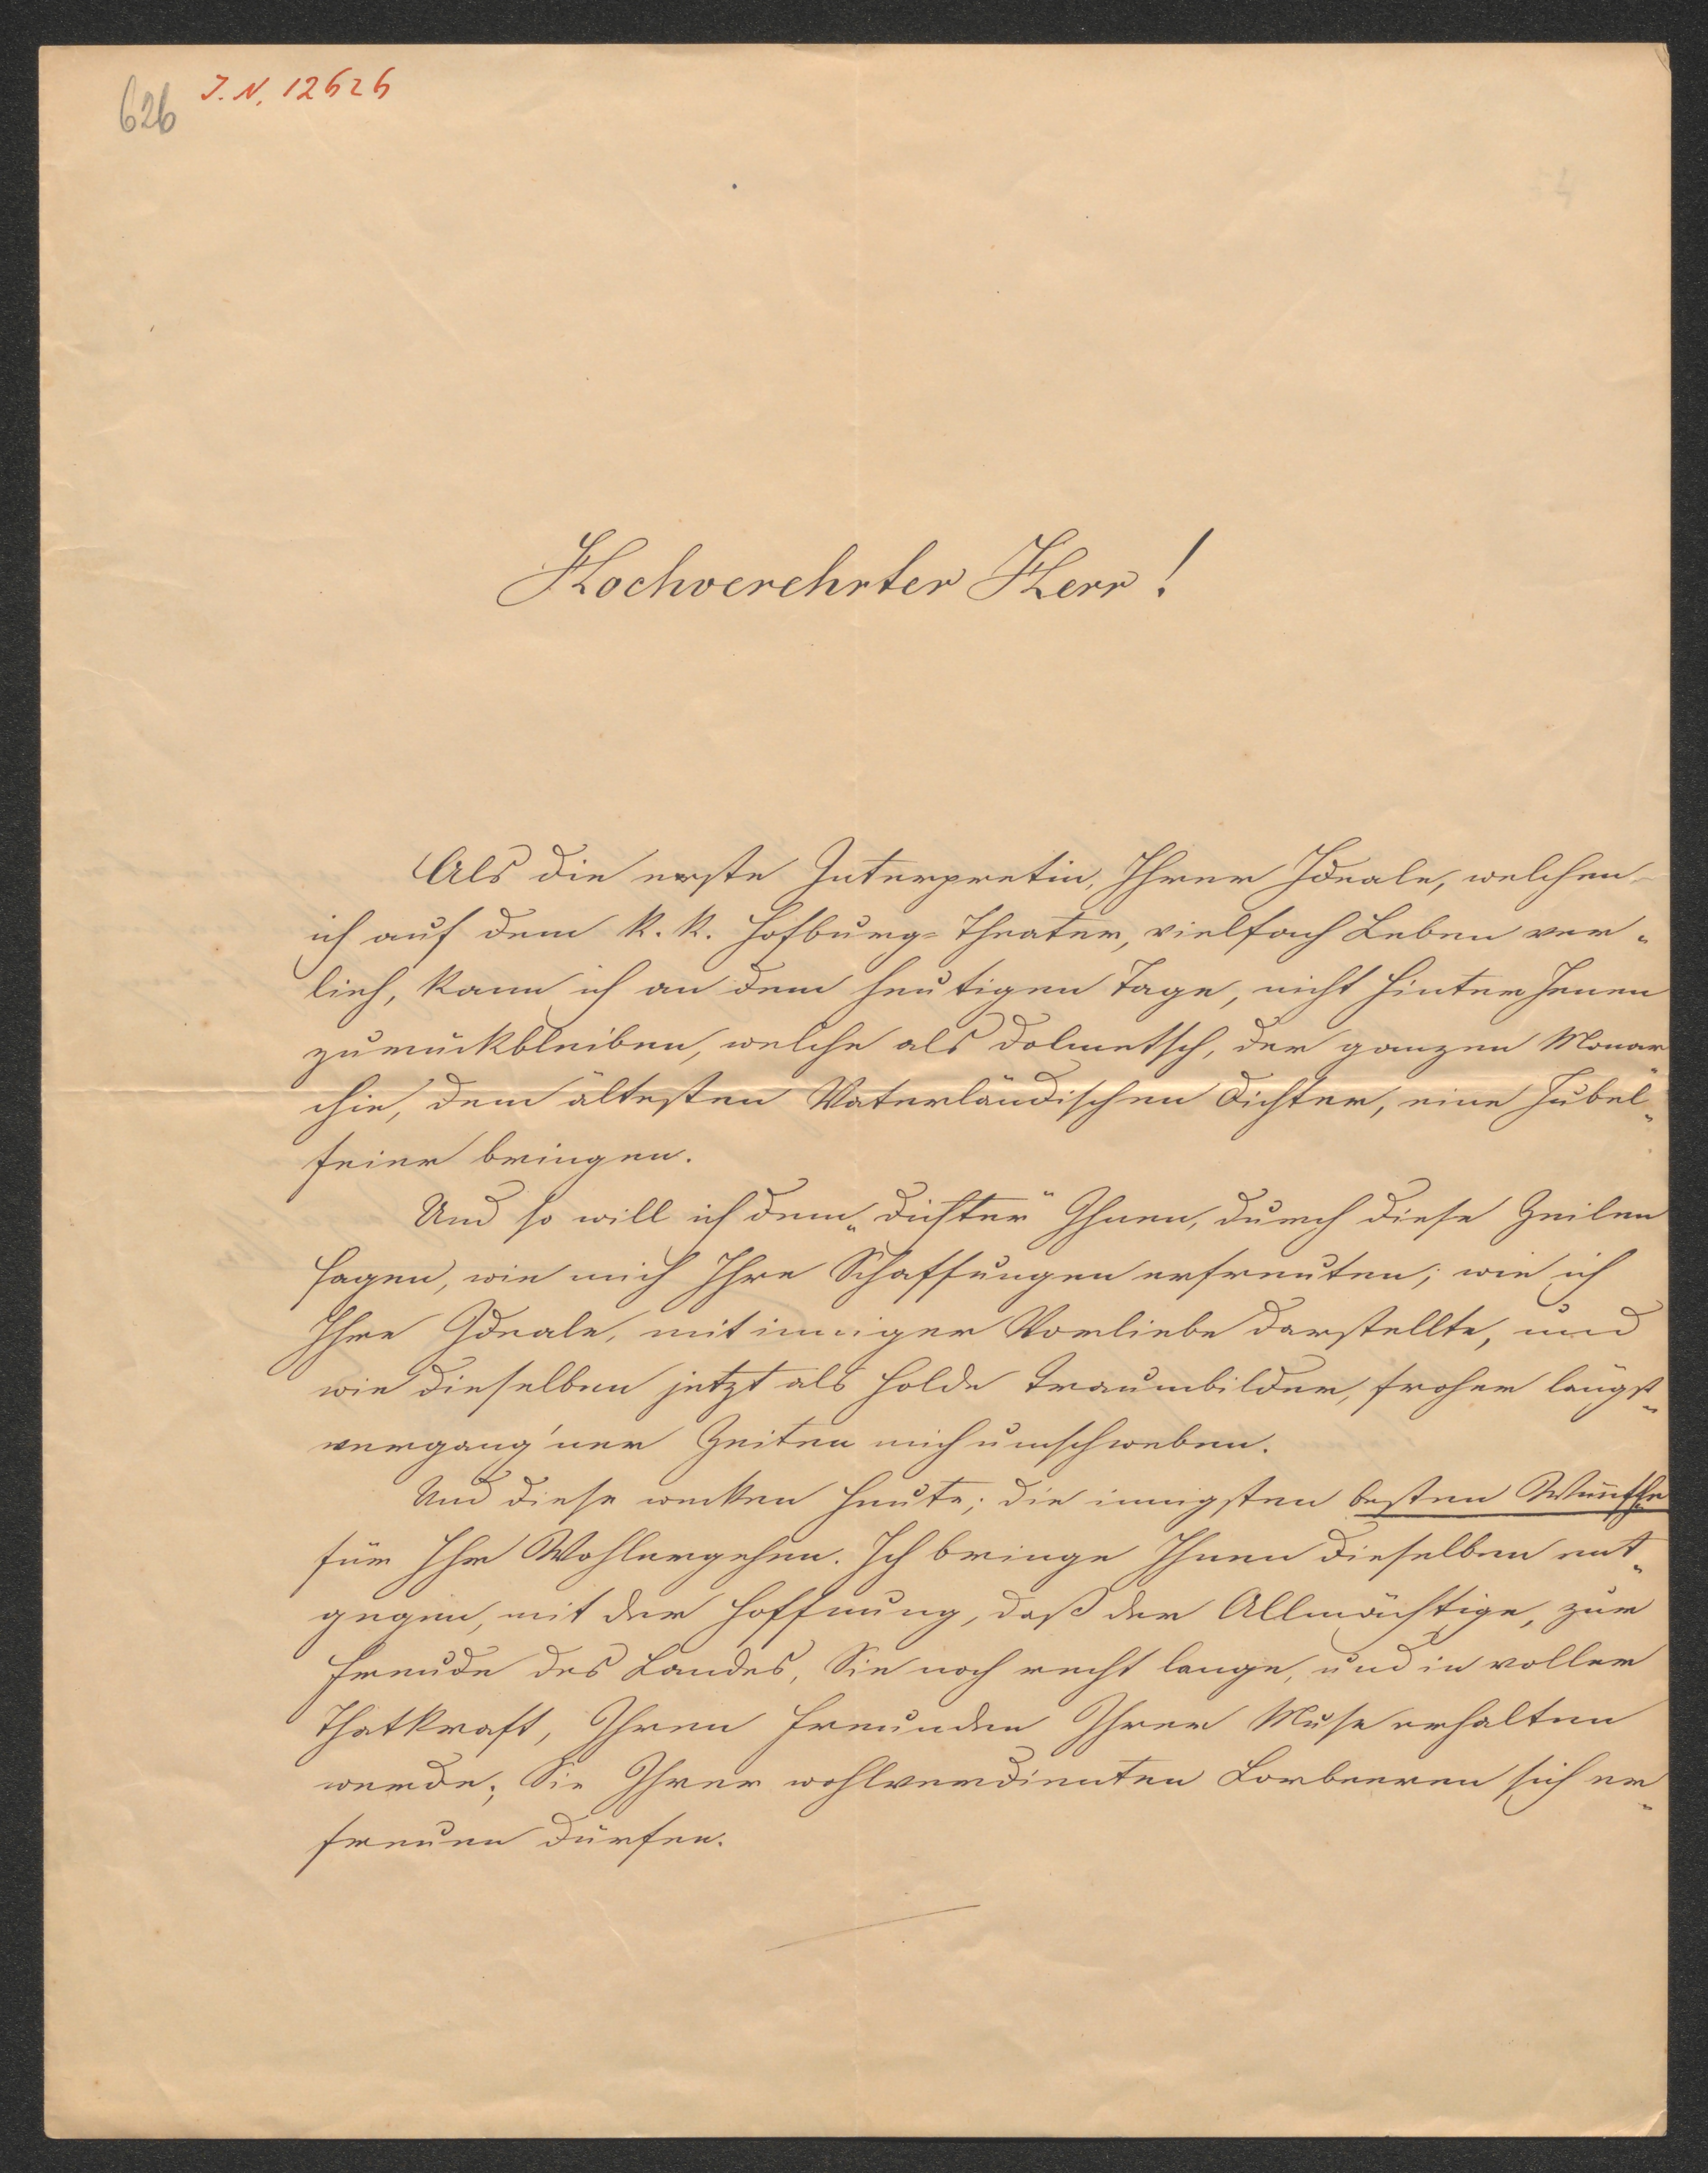 626 J. N. 12626
Hochverehrter Herr!
Als die erste Interpretin, Ihrer Ideale, welchen
ich auf dem k. k. Hofburg-Theater, vielfach Leben ver-
lieh, kann ich an dem heutigen Tage, nicht hinter Jenen
zurückbleiben, welche als Dolmetsch, der ganzen Monar
chie, dem ältesten Vaterländischen Dichter, eine Jubel-
feier bringen.
Und so will ich dem „Dichter" Ihnen, durch diese Zeilen
sagen, wie mich Ihre Schaffungen erfreuten; wie ich
Ihre Ideale, mit inniger Vorliebe darstellte, und
wie dieselben jetzt als holde Traumbilder, froher längst-
vergang'ner Zeiten mich umschweben.
Und diese wecken heute; die innigsten besten Wünsche
für Ihr Wohlergehen. Ich bringe Ihnen dieselben ent-
gegen, mit der Hoffnung, daß der Allmächtige, zur
Freude des Landes, Sie noch recht lange, und in voller
Thatkraft, Ihren Freunden Ihrer Muse erhalten
werde; Sie Ihrer wohlverdienten Lorbeeren sich er-
freuen dürfen.